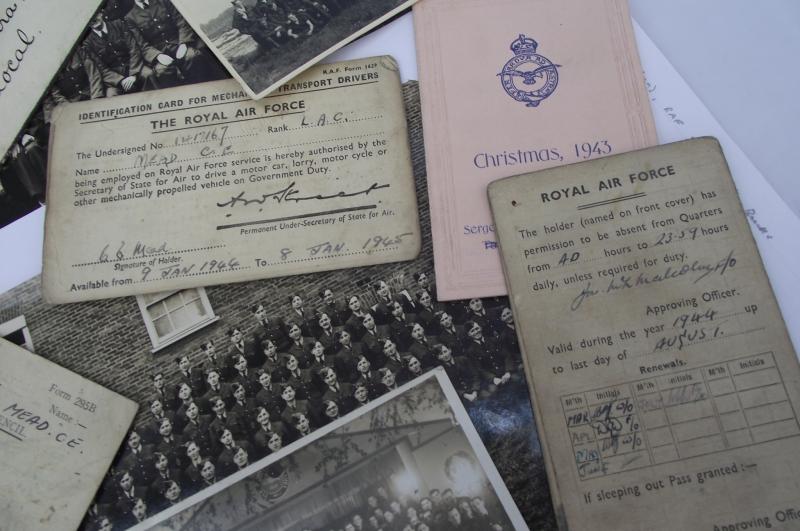 Local.
R.A.F. Form 1629
IDENTIFICATION CARD FOR TRANSPORT DRIVERS
THE ROYAL AIR FORCE
The Undersigned No. Rank L.A.C.
Name MEAD C.E
being employed on Royal Air Force service is hereby authorised by the
Secretary of State for Air to drive a motor car, lorry, motor cycle or
other mechanically propelled vehicle on Government Duty.
Permanent Under-Secretary of State for Air.
C E Mead
Signature of Holder.
Available from 9 JAN 1944 To 8 JAN. 1945
PER ARDUA AD ASTRA
Christmas, 1943
Serge
RAF
ROYAL AIR FORCE
The holder (named on front cover) has
permission to be absent from Quarters
from AD hours to 23.59 hours
daily, unless required for duty.
Approving Officer.
Valid during the year 1944 up
to last day of AUGUST.
Renewals.
M'th Initials M'th Initials M'th Initials
MAR
APL
MAY
JUNE
If sleeping out Pass granted :—
Approving Officer
Form 295B
Name:—
MEAD. C.E.
PENCIL)